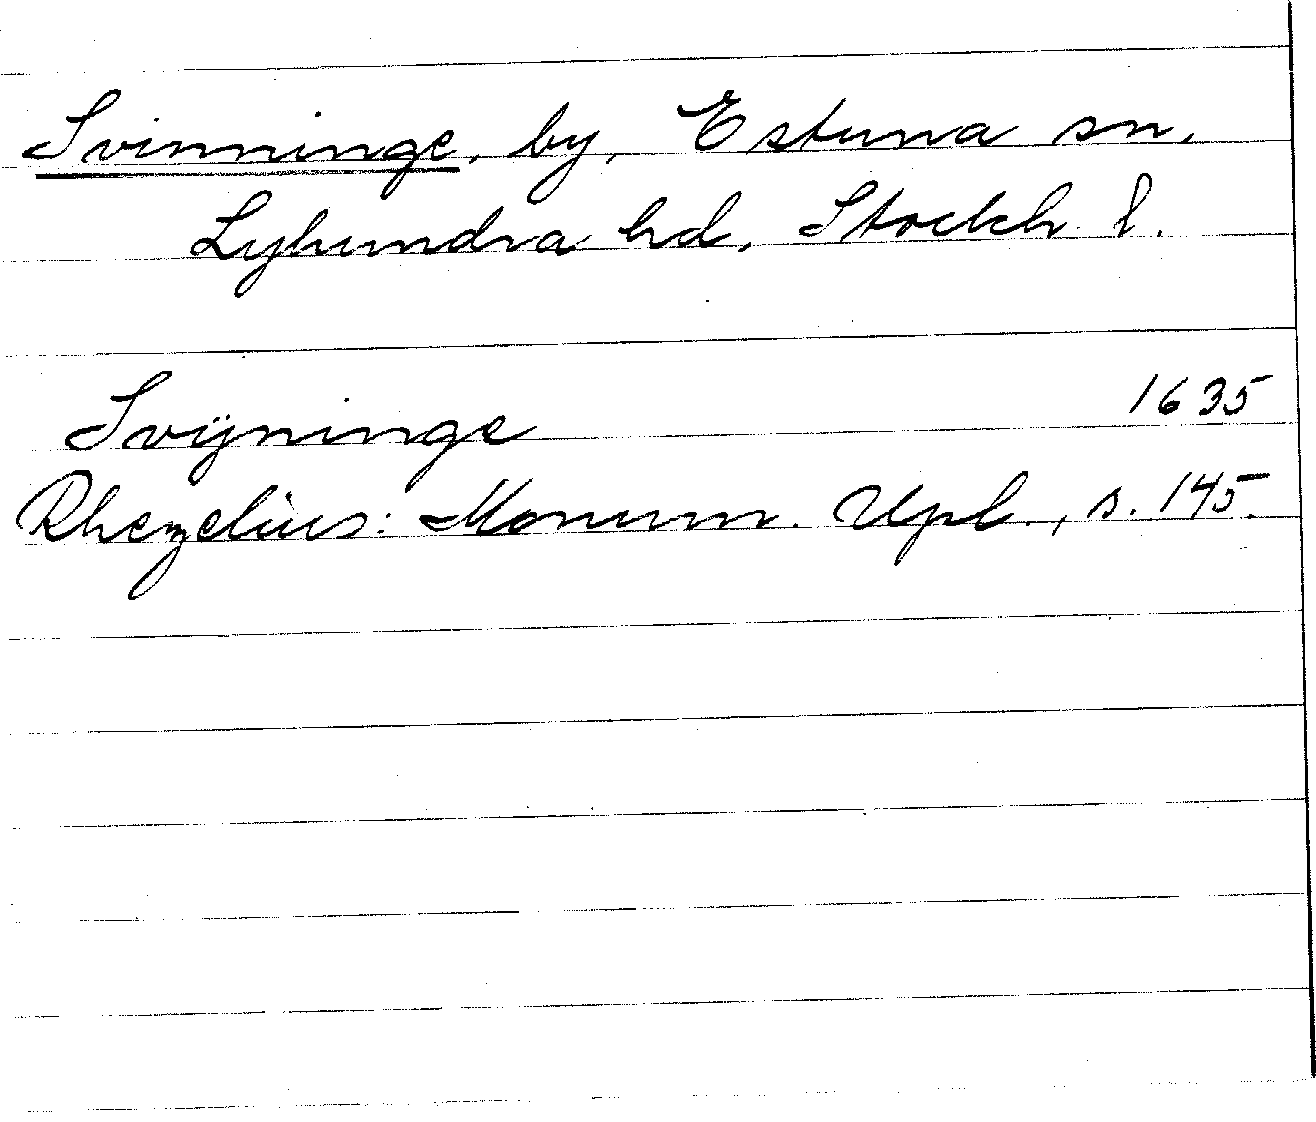 Svinninge, by, Estuna sn.
Lyhundra hd, Stockh. l.
Svÿninge 1635
Rhezelius: Monum. Upl., s. 145.